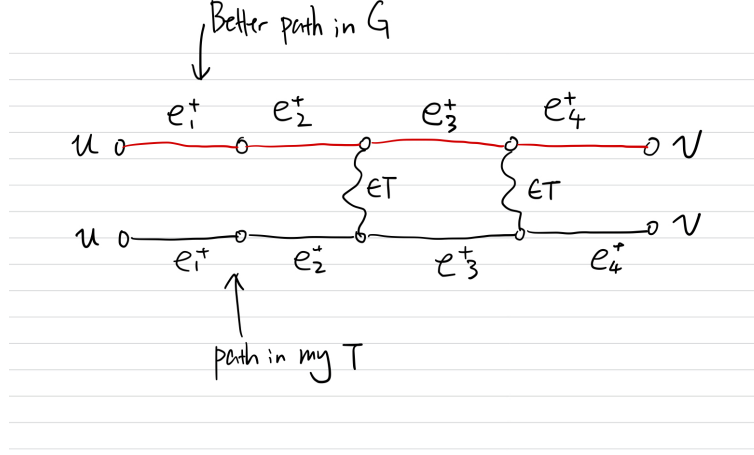 Better path in G
e₁⁺ e₂⁺ e₃⁺ e₄⁺
u v
∈T ∈T
u v
e₁⁺ e₂⁺ e₃⁺ e₄⁺
path in my T